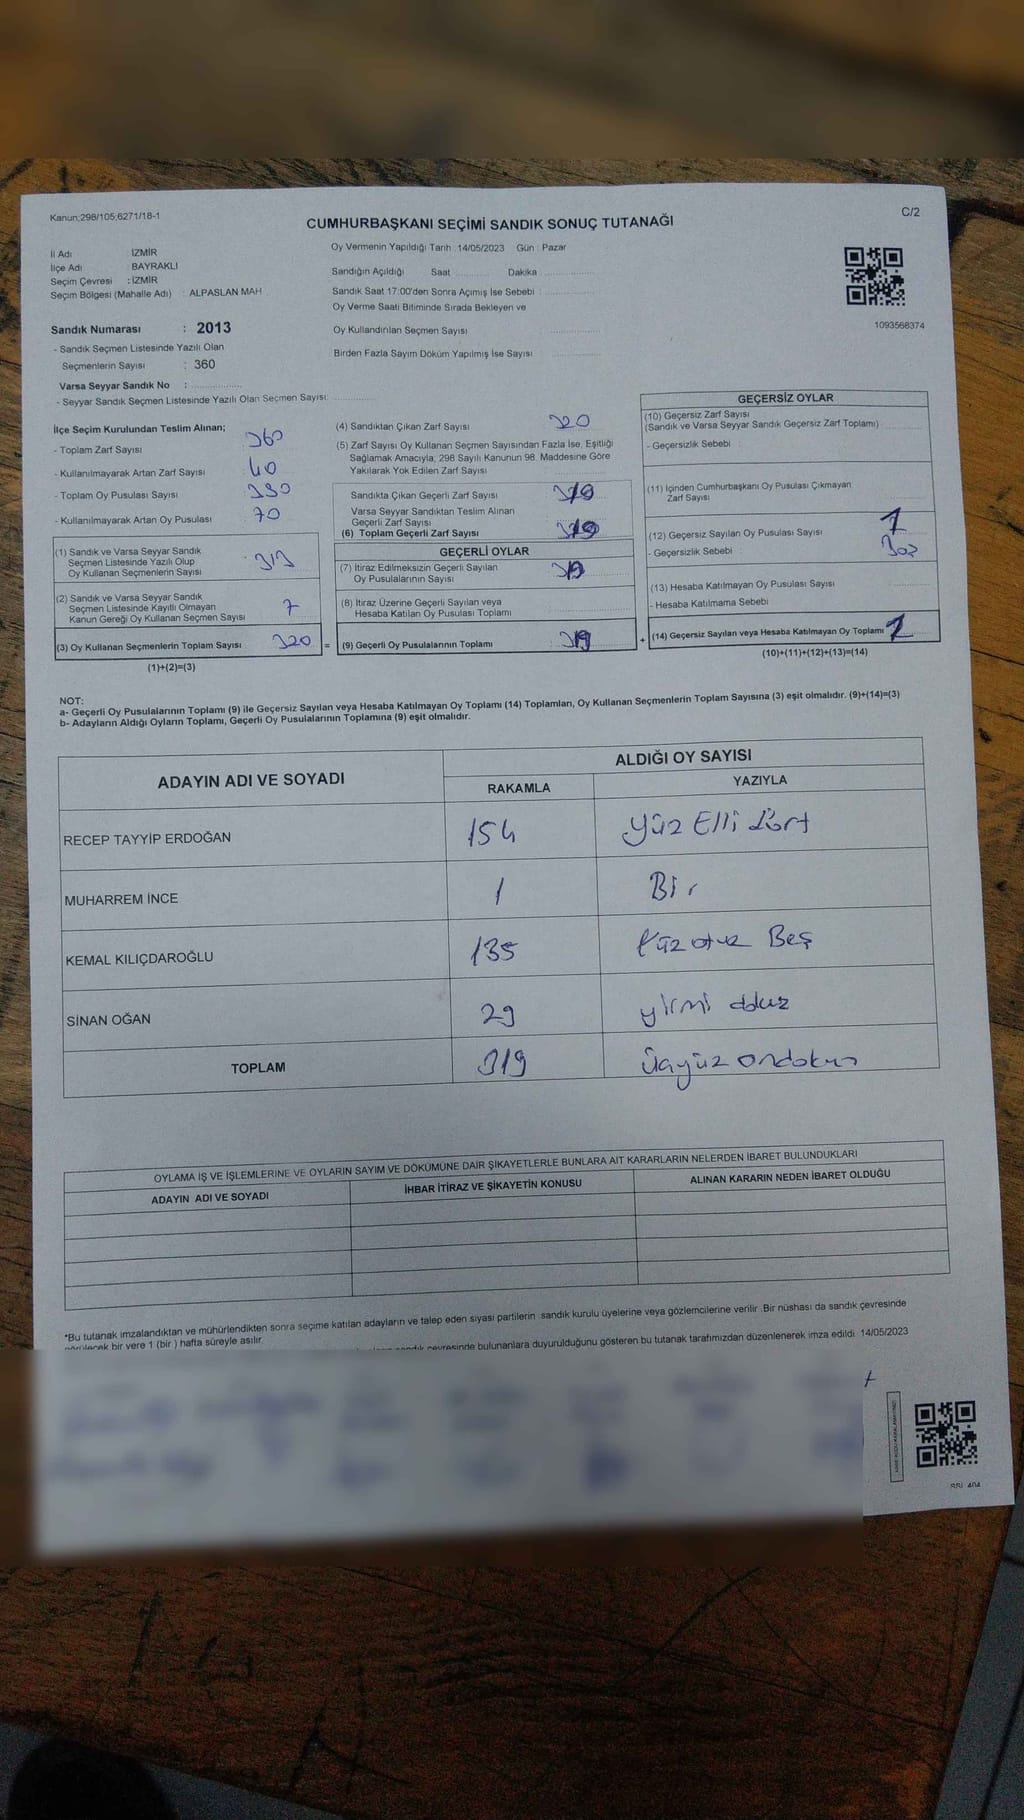 Kanun;298/105;6271/18-1
C/2
CUMHURBAŞKANI SEÇİMİ SANDIK SONUÇ TUTANAĞI
İl Adı İZMİR
İlçe Adı BAYRAKLI
Seçim Çevresi : İZMİR
Seçim Bölgesi (Mahalle Adı) : ALPASLAN MAH
Oy Vermenin Yapıldığı Tarih 14/05/2023 Gün : Pazar
Sandığın Açıldığı Saat Dakika
Sandık Saat 17:00'den Sonra Açımış İse Sebebi :
Oy Verme Saati Bitiminde Sırada Bekleyen ve
Oy Kullandırılan Seçmen Sayısı
Birden Fazla Sayım Döküm Yapılmış İse Sayısı
1093568374
Sandık Numarası : 2013
- Sandık Seçmen Listesinde Yazılı Olan
Seçmenlerin Sayısı : 360
Varsa Seyyar Sandık No :
- Seyyar Sandık Seçmen Listesinde Yazılı Olan Seçmen Sayısı:
İlçe Seçim Kurulundan Teslim Alınan;
- Toplam Zarf Sayısı : 360
- Kullanılmayarak Artan Zarf Sayısı 40
- Toplam Oy Pusulası Sayısı 390
- Kullanılmayarak Artan Oy Pusulası : 70
(1) Sandık ve Varsa Seyyar Sandık
Seçmen Listesinde Yazılı Olup
Oy Kullanan Seçmenlerin Sayısı 313
(2) Sandık ve Varsa Seyyar Sandık
Seçmen Listesinde Kayıtlı Olmayan
Kanun Gereği Oy Kullanan Seçmen Sayısı 7
(3) Oy Kullanan Seçmenlerin Toplam Sayısı 320 =
(1)+(2)=(3)
(4) Sandıktan Çıkan Zarf Sayısı 320
(5) Zarf Sayısı Oy Kullanan Seçmen Sayısından Fazla İse, Eşitliği
Sağlamak Amacıyla; 298 Sayılı Kanunun 98. Maddesine Göre
Yakılarak Yok Edilen Zarf Sayısı
Sandıkta Çıkan Geçerli Zarf Sayısı 319
Varsa Seyyar Sandıktan Teslim Alınan
Geçerli Zarf Sayısı
(6) Toplam Geçerli Zarf Sayısı 319
GEÇERLİ OYLAR
(7) İtiraz Edilmeksizin Geçerli Sayılan
Oy Pusulalarının Sayısı 319
(8) İtiraz Üzerine Geçerli Sayılan veya
Hesaba Katılan Oy Pusulası Toplamı
(9) Geçerli Oy Pusulalarının Toplamı 319 +
GEÇERSİZ OYLAR
(10) Geçersiz Zarf Sayısı
(Sandık ve Varsa Seyyar Sandık Geçersiz Zarf Toplamı)
- Geçersizlik Sebebi :
(11) İçinden Cumhurbaşkanı Oy Pusulası Çıkmayan
Zarf Sayısı
(12) Geçersiz Sayılan Oy Pusulası Sayısı 1
- Geçersizlik Sebebi : Boş
(13) Hesaba Katılmayan Oy Pusulası Sayısı
- Hesaba Katılmama Sebebi
(14) Geçersiz Sayılan veya Hesaba Katılmayan Oy Toplamı 1
(10)+(11)+(12)+(13)=(14)
NOT:
a- Geçerli Oy Pusulalarının Toplamı (9) ile Geçersiz Sayılan veya Hesaba Katılmayan Oy Toplamı (14) Toplamları, Oy Kullanan Seçmenlerin Toplam Sayısına (3) eşit olmalıdır. (9)+(14)=(3)
b- Adayların Aldığı Oyların Toplamı, Geçerli Oy Pusulalarının Toplamına (9) eşit olmalıdır.
ADAYIN ADI VE SOYADI
ALDIĞI OY SAYISI
RAKAMLA YAZIYLA
RECEP TAYYİP ERDOĞAN 154 Yüz Elli Dört
MUHARREM İNCE 1 Bir
KEMAL KILIÇDAROĞLU 135 Yüz otuz Beş
SİNAN OĞAN 29 yirmi dokuz
TOPLAM 319 üçyüz ondokuz
OYLAMA İŞ VE İŞLEMLERİNE VE OYLARIN SAYIM VE DÖKÜMÜNE DAİR ŞİKAYETLERLE BUNLARA AİT KARARLARIN NELERDEN İBARET BULUNDUKLARI
ADAYIN ADI VE SOYADI İHBAR İTİRAZ VE ŞİKAYETİN KONUSU ALINAN KARARIN NEDEN İBARET OLDUĞU
*Bu tutanak imzalandıktan ve mühürlendikten sonra seçime katılan adayların ve talep eden siyasi partilerin sandık kurulu üyelerine veya gözlemcilerine verilir. Bir nüshası da sandık çevresinde
görülecek bir yere 1 (bir) hafta süreyle asılır.
sandık çevresinde bulunanlara duyurulduğunu gösteren bu tutanak tarafımızdan düzenlenerek imza edildi. 14/05/2023